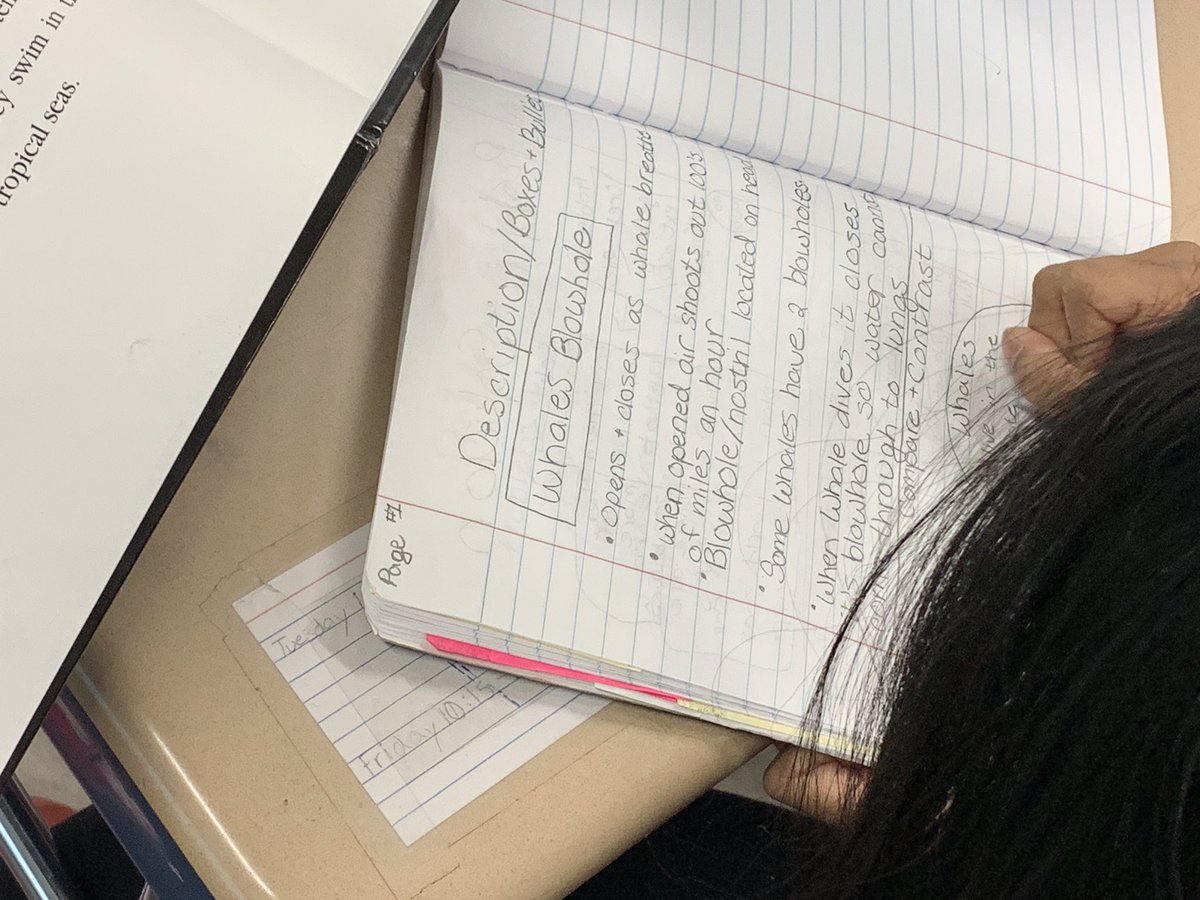 swim in
tropical seas.
Page #1
Description/Boxes + Bullet
Whales Blowhole
• Opens + closes as whale breath
• when opened air shoots out 100's
of miles an hour
• Blowhole/nostril located on head
• Some whales have 2 blowholes.
• When whale dives it closes
blowhole so water cannot
through to lungs
Compare + Contrast
whales
in the
Tuesday
Friday 10:15